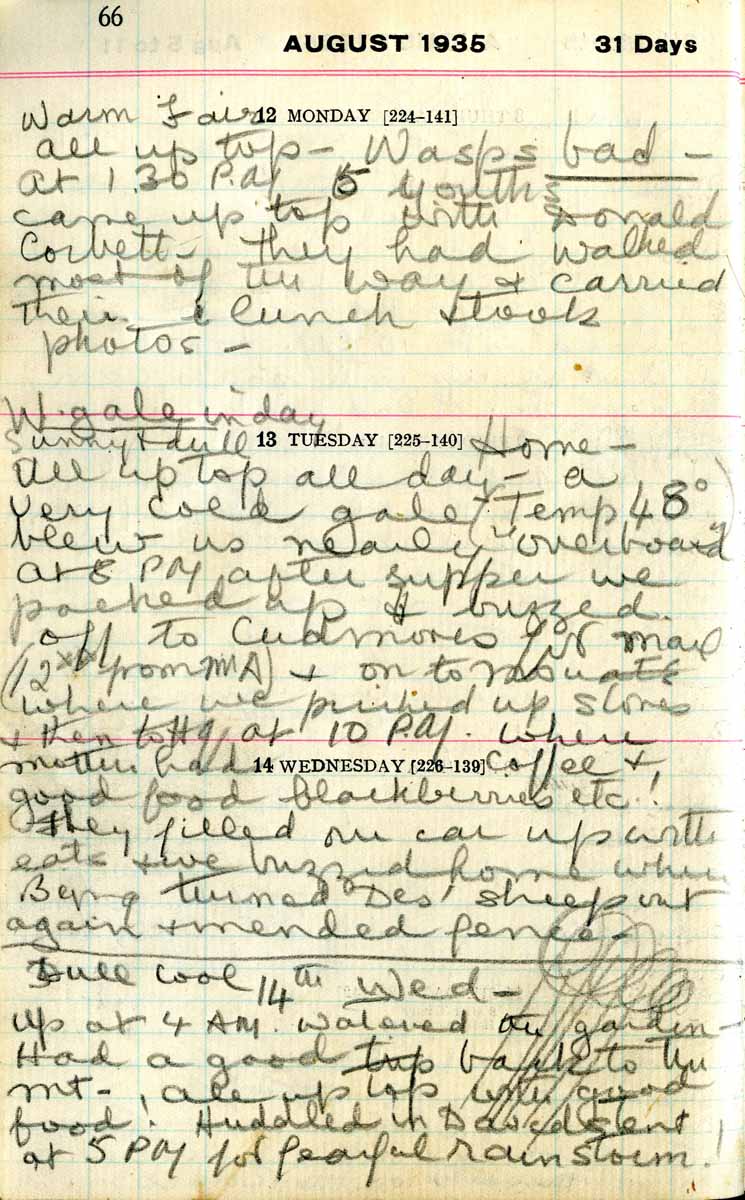 66
AUGUST 1935 31 Days
Warm Fair 12 MONDAY [224–141]
all up top – Wasps bad –
at 1.30 P.M 5 youths
came up top with Donald
Corbett – they had walked
most of the way & carried
their lunch & took
photos –
W. gale in day
Sunny & dull 13 TUESDAY [225–140] Home –
All up top all day – a
very cold gale (Temp 48°)
blew us nearly "overboard"
at 8 PM after supper we
packed up & buzzed
off to Cudmores for mail
(12 from MA) & on to
(where we picked up stores
& then to Hq at 10 P.M. where
mother had 14 WEDNESDAY [226–139] coffee &
good food blackberries etc!
They filled our car up with
eats & we buzzed home where
Being turned Des' sheep out
again & mended fence –
Dull cool 14th Wed –
Up at 4 AM. watered the garden –
Had a good trip back to the
mt –, all up top with good
food! Huddled in David's tent
at 5 PM for fearful rainstorm!